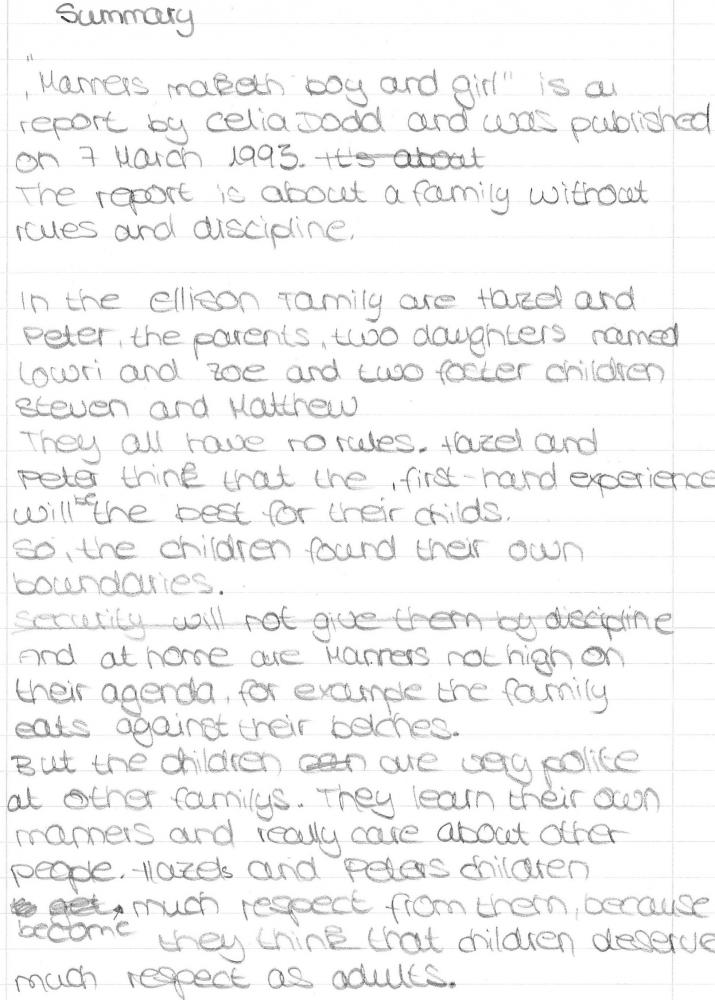 Summary
"Manners maketh boy and girl" is a
report by Celia Dodd and was published
on 7 March 1993. It's about
The report is about a family without
rules and discipline.
In the Ellison Family are Hazel and
Peter, the parents, two daughters named
Lowri and Zoe and two foster children
Steven and Matthew
They all have no rules. Hazel and
Peter think that the first-hand experience
will be the best for their childs.
So, the children found their own
boundaries.
Security will not give them by discipline
And at home are Manners not high on
their agenda, for example the family
eats against their belches.
But the children can are very polite
at other familys. They learn their own
manners and really care about other
people. Hazels and Peters children
get much respect from them, because
become they think that children deserve
much respect as adults.